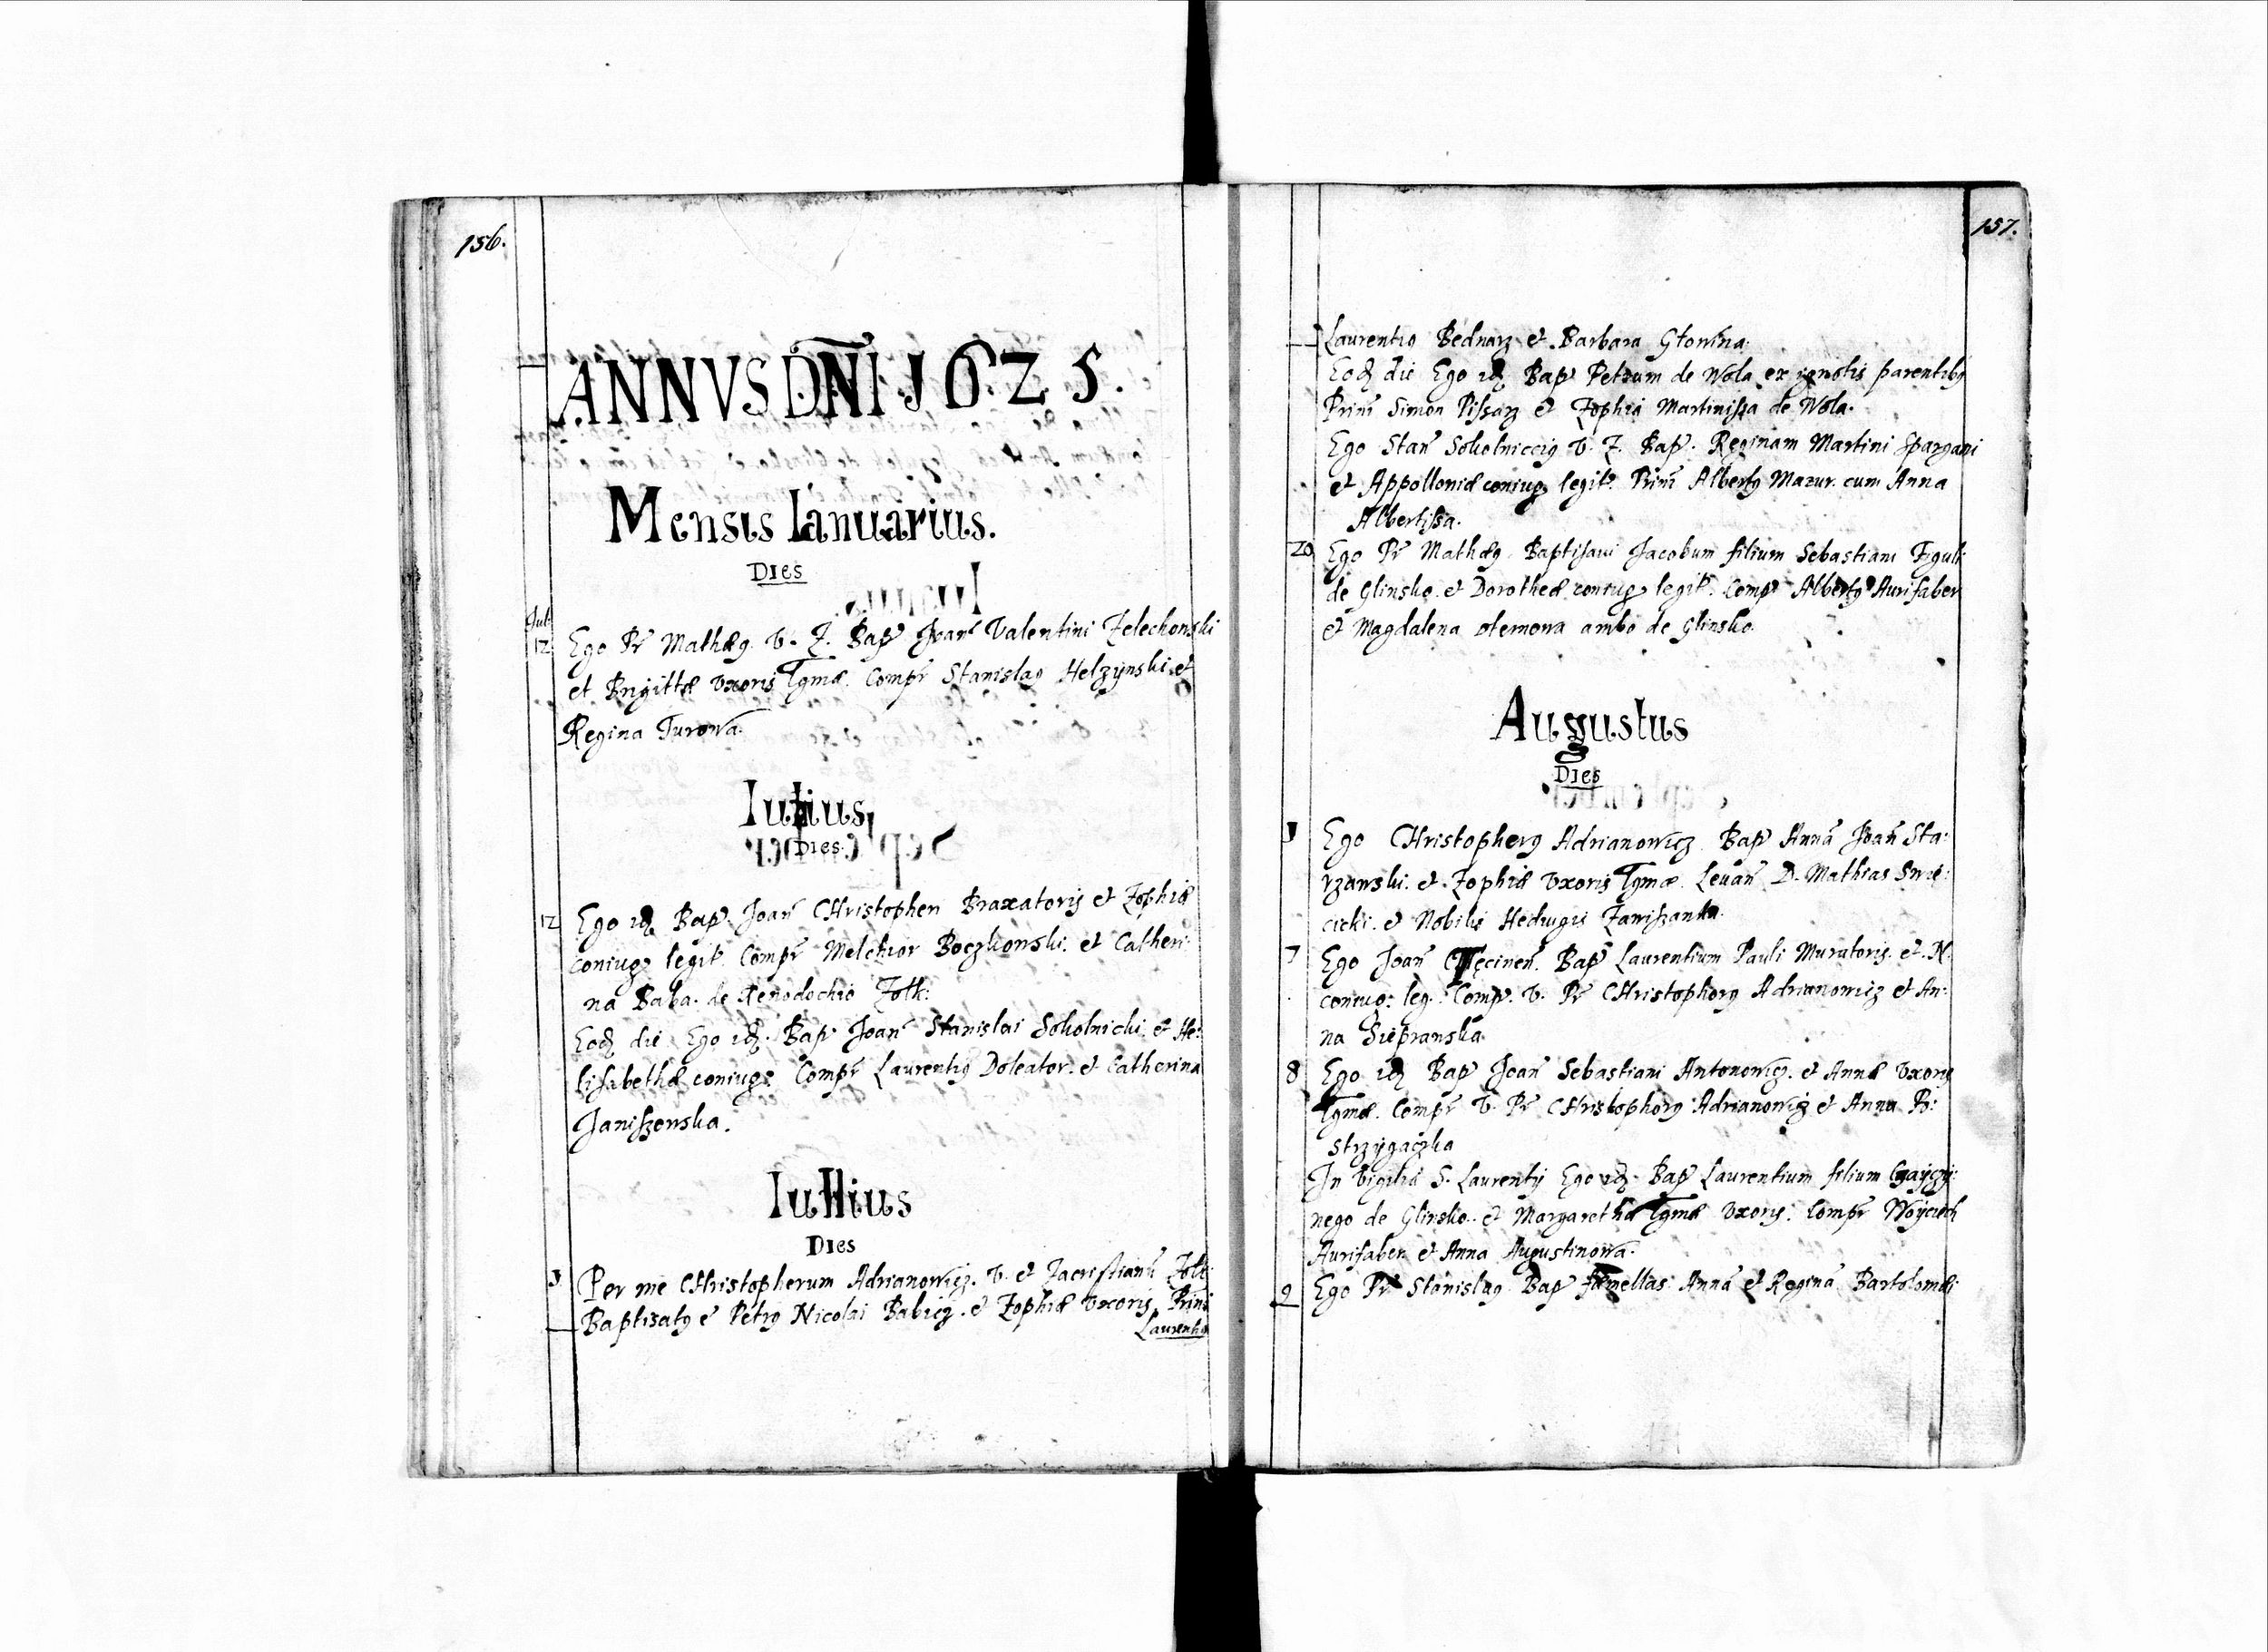 156.
ANNVS DN̄I 1625.
Mensis Ianuarius.
Dies
Jul:
12 Ego Pr Mathæg V. Z. Bap Joan Valentini Zelechowski
et Brigittæ Vxoris Lgmæ. Compr Stanislag Helzynski et
Regina Turowa.
Iulius
Dies.
12 Ego idz Bap Joan Christopheri Braxatoris et Zophiæ
coniug legit. Compr Melchior Boczkowski. et Catheri-
na Baba. de Xenodochio Zolk:
Eodz die Ego idz. Bap Joan Stanislai Sokolnicki et He:
lisabethæ coniug: Compr Laurentig Doleator. et Catherina
Janiszewska.
Iullius
Dies
3 Per me Christopherum Adrianowicz. V. et Zacristianu Zolk:
Baptizatg e Petrg Nicolai Babicz. et Zophiæ Vxoris, Prini
Laurentio
157.
Laurentio Bednarz et Barbara
Eodz die Ego idz Bap Petrum de Wola ex ignotis parentibg
Prini Simon Piszarz et Zophia Martinissa de Wola.
Ego Stan Sokolniccig V. Z. Bap. Reginam Martini Spargani
et Appolloniæ coniug legit. Prini Albertg Mazur. cum Anna
Albertissa.
20 Ego Pr Mathæg Baptisavi Jacobum filium Sebastiani Figuli
de Glinsko. et Dorotheæ coniug legit. Comp Albertg Aurifaber
et Magdalena ambo de Glinsko.
Augustus
Dies
Ego Christopherg Adrianowicz Bap Anna Joan Sta:
rzawski. et Zophiæ Vxoris Lgmæ. Levan D. Mathias Swie:
cicki. et Nobilis Hedwigis
7 Ego Joan Bap Laurentium Pauli Muratoris. et. N.
coniug: leg. Comp. V. Pr Christophorg Adrianowicz et An:
na Siepranska
8 Ego idz Bap Joan Sebastiani Antonowicz. et Annæ Vxoris
Lgmæ. Compr V. Pr Christophorg Adrianowicz et Anna Po:
strzygaczka
In Vigilia S. Laurentij Ego idz. Bap Laurentium filium Czayczy:
nego de Glinsko. et Margaretha Lgmæ Vxoris: Compr Woyciech
Aurifaber et Anna Augustinowa.
9 Ego Pr Stanislag Bap Jamellas: Anna et Regina Bartolomæi